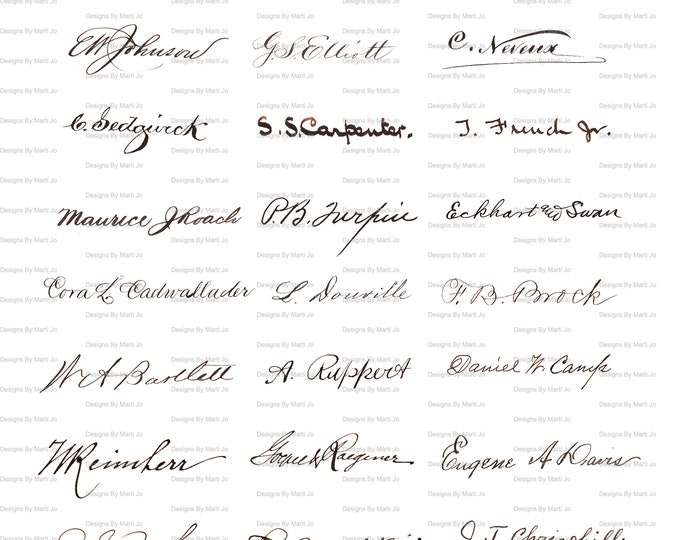 EW Johnson G.S. Elliott C. Neveux
C. Sedgwick S.S. Carpenter. T. French Jr.
Maurice J Roach P.B. Turpin Eckhart and Swan
Cora L Cadwallader L. Douville F. B. Brock
W A Bartlett A. Ruppert Daniel W Camp
Reimherr Raegener Eugene A Davis
J. T.
Designs By Marti Jo